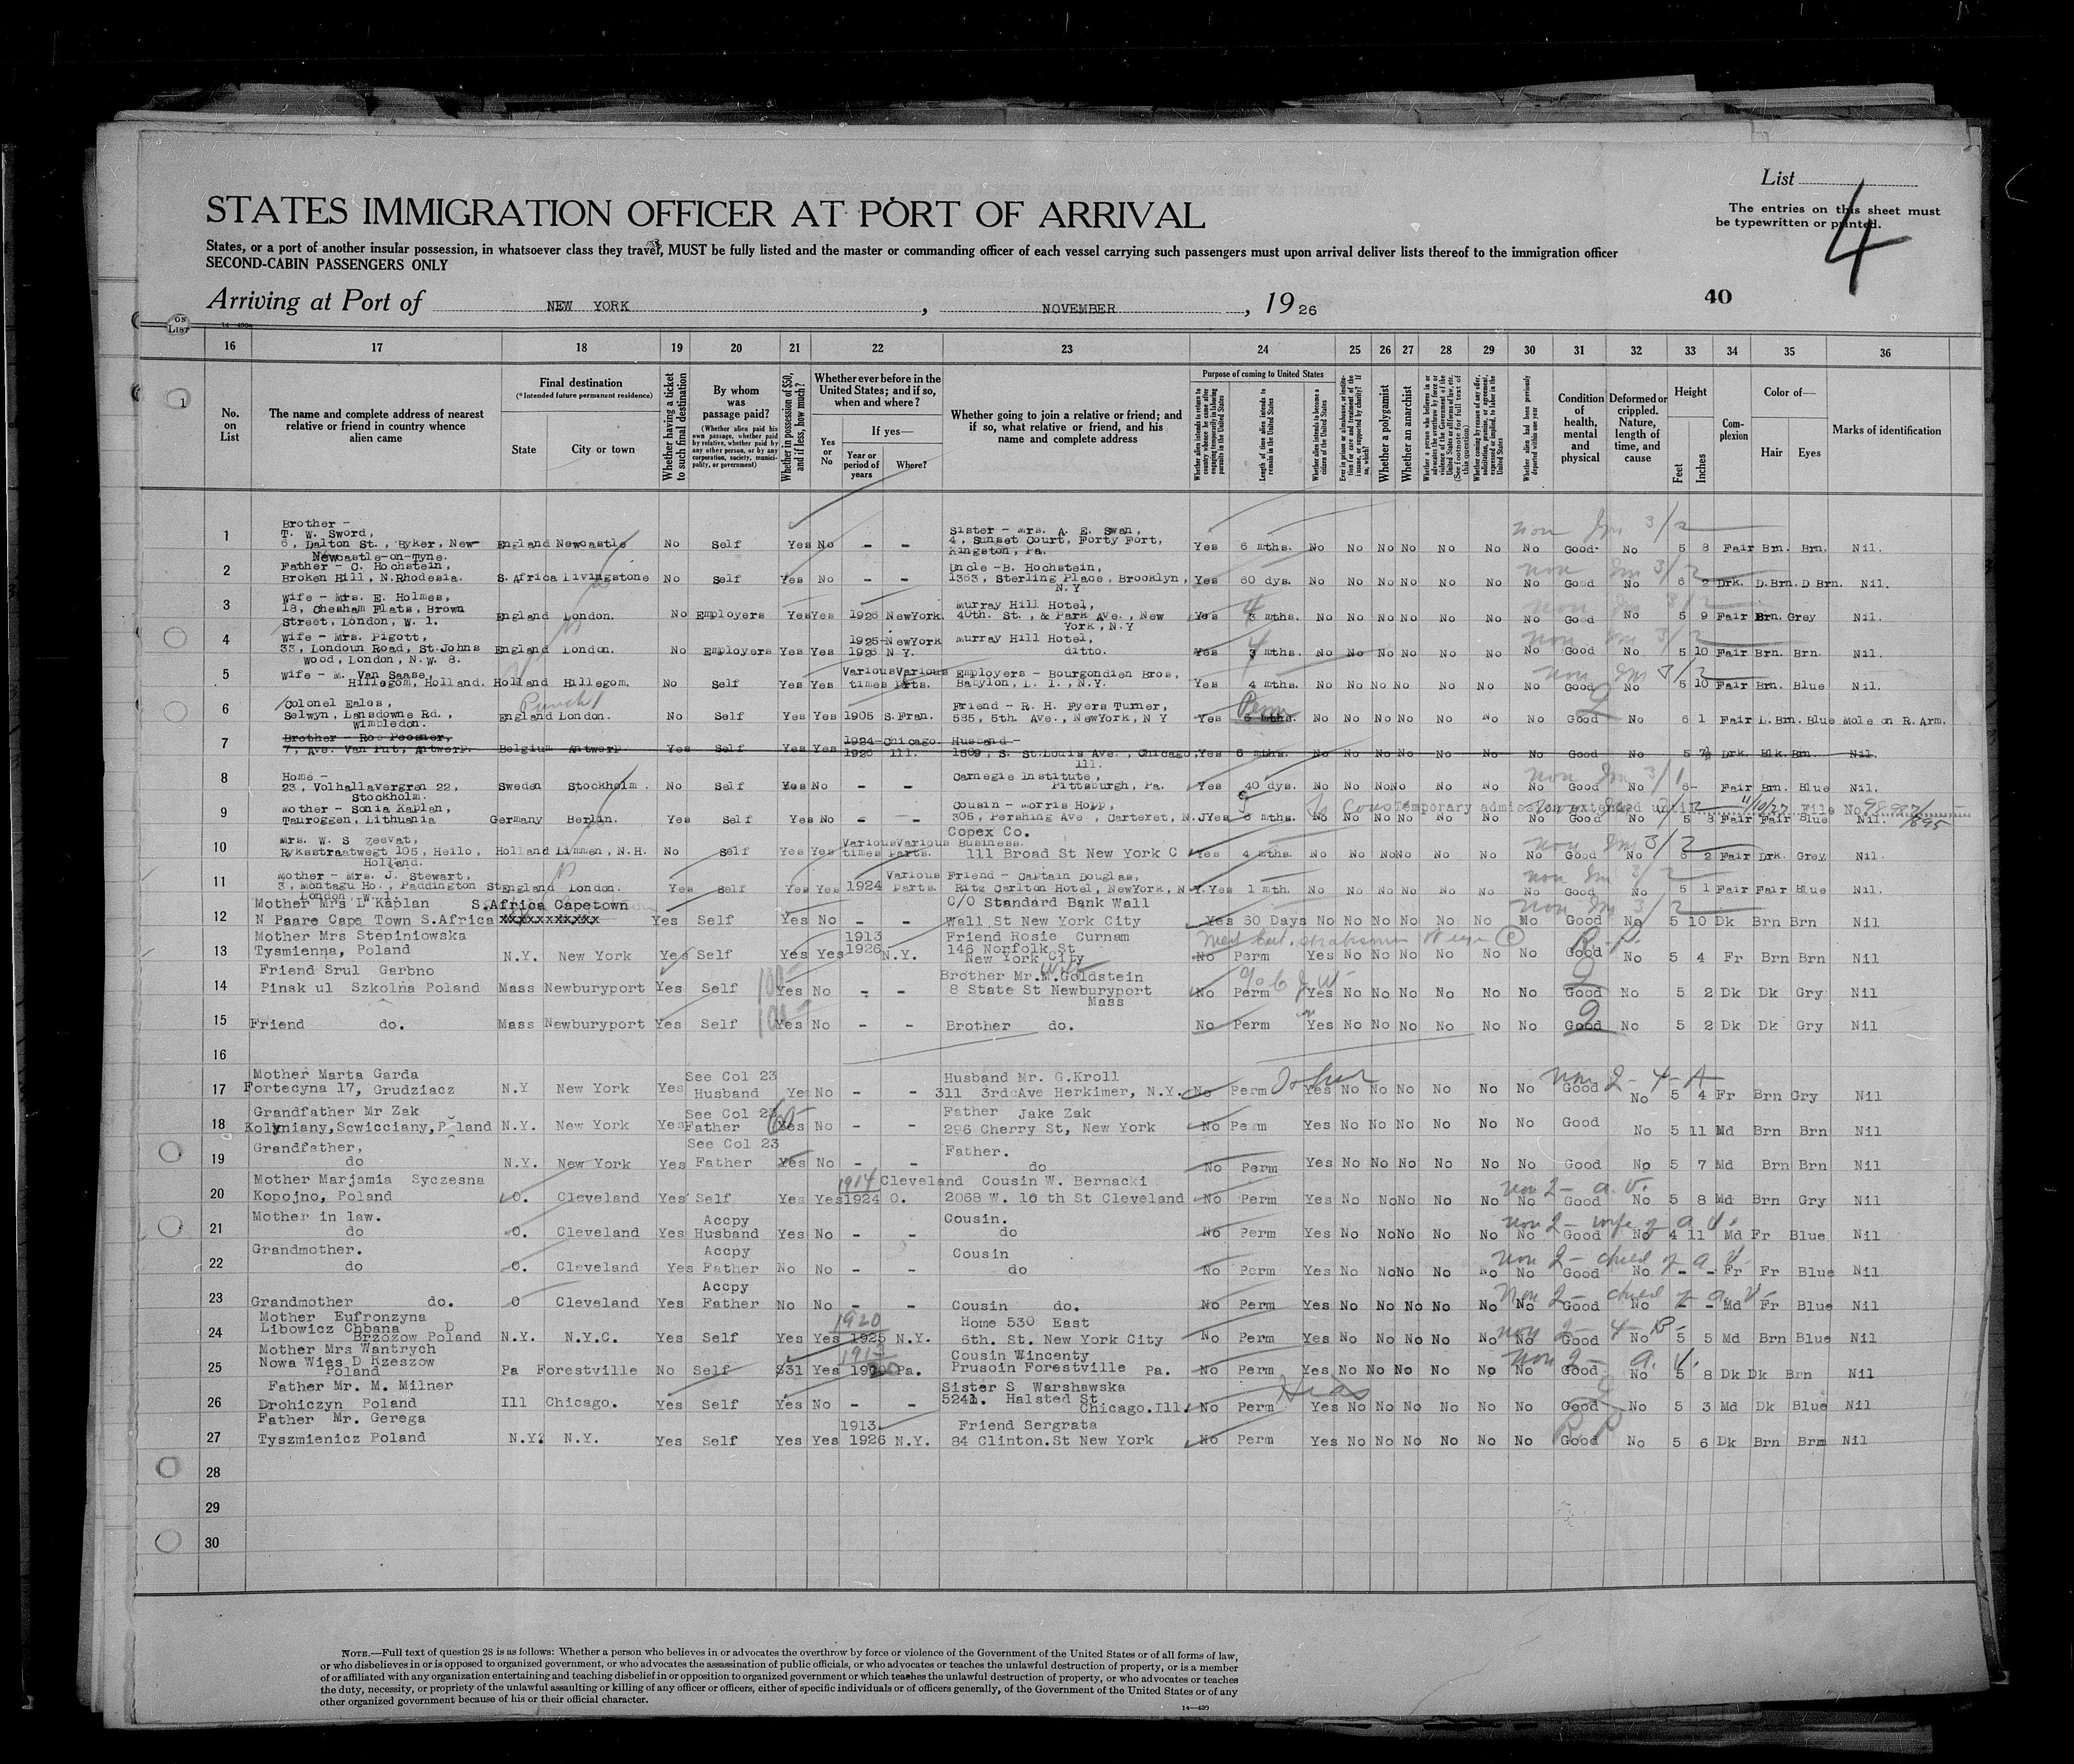 List
The entries on this sheet must
be typewritten or printed.
4
STATES IMMIGRATION OFFICER AT PORT OF ARRIVAL
States, or a port of another insular possession, in whatsoever class they travel, MUST be fully listed and the master or commanding officer of each vessel carrying such passengers must upon arrival deliver lists thereof to the immigration officer
SECOND-CABIN PASSENGERS ONLY
Arriving at Port of NEW YORK , NOVEMBER , 19 26
40
ON LIST
16 17 18 19 20 21 22 23 24 25 26 27 28 29 30 31 32 33 34 35 36
No. on List
The name and complete address of nearest relative or friend in country whence alien came
Final destination
(*Intended future permanent residence)
State
City or town
Whether having a ticket to such final destination
By whom was passage paid?
(Whether alien paid his own passage, whether paid by relative, whether paid by any other person, or by any corporation, society, municipality, or government)
Whether in possession of $50, and if less, how much?
Whether ever before in the United States; and if so, when and where?
Yes or No
If yes—
Year or period of years
Where?
Whether going to join a relative or friend; and if so, what relative or friend, and his name and complete address
Purpose of coming to United States
Whether alien intends to return to country whence he came after engaging temporarily in laboring pursuits in the United States
Length of time alien intends to remain in the United States
Whether alien intends to become a citizen of the United States
Whether a polygamist
Whether an anarchist
Condition of health, mental and physical
Deformed or crippled. Nature, length of time, and cause
Height
Feet
Inches
Complexion
Color of—
Hair
Eyes
Marks of identification
1 Brother -
T. W. Sword,
6, Dalton St., Byker, New-
Newcastle-on-Tyne.
England Newcastle No Self Yes No - -
Sister - Mrs. A. E. Swan,
4, Sunset Court, Forty Fort,
Kingston, Pa.
Yes 6 mths. No No No No No No No Good No 5 8 Fair Brn. Brn. Nil.
2 Father - C. Hochstein,
Broken Hill, N.Rhodesia. S. Africa Livingstone No Self Yes No - -
Uncle -B. Hochstein,
1363, Sterling Place, Brooklyn,
N.Y
Yes 60 dys. No No No No No No No Good No 6 2 Drk. D.Brn. D Brn. Nil.
3 Wife - Mrs. E. Holmes,
18, Chesham Flats, Brown
Street, London, W. 1.
England London. No Employers Yes Yes 1926 NewYork.
Murray Hill Hotel,
40th. St., & Park Ave., New
York, N.Y
Yes 3 mths. No No No No No No No Good No 5 9 Fair Brn. Grey Nil.
4 Wife - Mrs. Pigott,
33, Loudoun Road, St.Johns
Wood, London, N.W. 8.
England London. No Employers Yes Yes 1925- NewYork
1926 N Y.
Murray Hill Hotel,
ditto.
Yes 3 mths. No No No No No No No Good No 5 10 Fair Brn. Brn. Nil.
5 Wife - M. Van Saase,
Hillegom, Holland. Holland Hillegom. No Self Yes Yes Various Various
times Prts.
Employers - Bourgondien Bros,
Babylon, L. I., N.Y.
Yes 4 mths. No No No No No No No Good No 5 10 Fair Brn. Blue Nil.
6 Colonel Eales,
Selwyn, Lansdowne Rd.,
Wimbledon.
England London. No Self Yes Yes 1905 S.Fran.
Friend - R. H. Fyers Turner,
585, 5th. Ave., NewYork, N Y
Perm
Yes 6 mths. No No No No No No No Good No 6 1 Fair L.Brn. Blue Mole on R. Arm.
7 Brother - Ros Posner,
7, Ave. Van Put, Antwerp. Belgium Antwerp Yes Self Yes Yes 1924- Chicago
1926 Ill.
Husband -
1509, S. St.Louis Ave., Chicago,
Ill.
Yes 6 mths. No No No No No No No Good No 5 7½ Drk. Blk. Brn. Nil.
8 Home -
23, Volhallavergren 22,
Stockholm.
Sweden Stockholm. No Self Yes No - -
Carnegie Institute,
Pittsburgh, Pa.
Yes 40 dys. No No No No No No No Good No 6- Fair Brn. Blue Nil.
9 Mother - Sonia Kaplan,
Tauroggen, Lithuania Germany Berlin. Yes Self Yes No - -
Cousin - Morris Hopp,
305, Pershing Ave, Carteret, N.J
Temporary admission extended until 11/10/27 File No 98987/895
Yes 6 mths. No No No No No No No Good No 5 8 Fair Fair Blue Nil.
10 Mrs. W. S Zeevat,
Ryksstraatwegt 105, Heilo,
Holland.
Holland Limmen, N.H. No Self Yes Yes Various Various
times Parts.
Copex Co.
Business.
111 Broad St New York C
Yes 4 mths. No No No No No No No Good No 6 2 Fair Drk. Grey Nil.
11 Mother - Mrs. J. Stewart,
3, Montagu Ho., Paddington St
London W.1.
England London. Yes Self Yes Yes 1924 Various
Parts.
Friend - Captain Douglas,
Ritz Carlton Hotel, NewYork, N.Y.
Yes 1 mth. No No No No No No No Good No 5 1 Fair Fair Blue Nil.
12 Mother Mrs L Kaplan
N Paare Cape Town S.Africa
S.Africa Capetown
xxxxxxxxxxxx
Yes Self Yes No - -
C/O Standard Bank Wall
Wall St New York City
Yes 60 Days No No No No No No No Good No 5 10 Dk Brn Brn Nil
13 Mother Mrs Stepiniowska
Tysmienna, Poland N.Y. New York Yes Self Yes Yes 1913
1926 N.Y.
Friend Rosie Curnam
146 Norfolk St
New York City
No Perm Yes No No No No No No Good No 5 4 Fr Brn Brn Nil
14 Friend Srul Garbno
Pinsk ul Szkolna Poland Mass Newburyport Yes Self Yes No - -
Brother Mr.M.Goldstein
8 State St Newburyport
Mass
No Perm Yes No No No No No No Good No 5 2 Dk Dk Gry Nil
15 Friend do. Mass Newburyport Yes Self Yes No - - Brother do. No Perm Yes No No No No No No Good No 5 2 Dk Dk Gry Nil
16
17 Mother Marta Garda
Fortecyna 17, Grudziacz N.Y New York Yes See Col 23
Husband Yes No - -
Husband Mr. G.Kroll
311 3rd Ave Herkimer, N.Y.
No Perm Yes No No No No No No Good No 5 4 Fr Brn Gry Nil
18 Grandfather Mr Zak
Kolyniany, Scwicciany, Poland N.Y. New York Yes See Col 23
Father Yes No - -
Father Jake Zak
296 Cherry St, New York
No Perm Yes No No No No No No Good No 5 11 Md Brn Brn Nil
19 Grandfather,
do N.Y. New York Yes See Col 23
Father Yes No - -
Father.
do
No Perm Yes No No No No No No Good No 5 7 Md Brn Brn Nil
20 Mother Marjamia Syczesna
Kopojno, Poland O. Cleveland Yes Self Yes Yes 1914
1924 Cleveland
O.
Cousin W. Bernacki
2068 W. 10 th St Cleveland
No Perm Yes No No No No No No Good No 5 8 Md Brn Gry Nil
21 Mother in law.
do O. Cleveland Yes Accpy
Husband Yes No - -
Cousin.
do
non 2 - wife of a V.
No Perm Yes No No No No No No Good No 4 11 Md Fr Blue Nil
22 Grandmother.
do O. Cleveland Yes Accpy
Father No No - -
Cousin
do
non 2 - child of a V
No Perm Yes No No No No No No Good No - - Fr Fr Blue Nil
23 Grandmother do. O Cleveland Yes Accpy
Father No No - -
Cousin do.
non 2 - child of a V-
No Perm Yes No No No No No No Good No - - Md Fr Blue Nil
24 Mother Eufronzyna
Libowicz Chbana D
Brzozow Poland N.Y. N.Y.C. Yes Self Yes Yes 1920
1925 N.Y.
Home 530 East
6th. St. New York City
No Perm Yes No No No No No No Good No 5 5 Md Brn Blue Nil
25 Mother Mrs Wantrych
Nowa Wies D Rzeszow
Poland
Pa Forestville No Self $31 Yes 1913
1920 Pa.
Cousin Wincenty
Prusoin Forestville Pa.
No Perm Yes No No No No No No Good No 5 8 Dk Dk Brn Nil
26 Father Mr. M. Milner
Drohiczyn Poland Ill Chicago. Yes Self Yes No - -
Sister S Warshawska
5241. Halsted St
Chicago.Ill.
Hias
No Perm Yes No No No No No No Good No 5 3 Md Dk Blue Nil
27 Father Mr. Gerega
Tyszmienicz Poland N.Y. N.Y. Yes Self Yes Yes 1913
1926 N.Y.
Friend Sergrata
84 Clinton.St New York
No Perm Yes No No No No No No Good No 5 6 Dk Brn Brm Nil
28
29
30
NOTE.—Full text of question 28 is as follows: Whether a person who believes in or advocates the overthrow by force or violence of the Government of the United States or of all forms of law,
or who disbelieves in or is opposed to organized government, or who advocates the assassination of public officials, or who advocates or teaches the unlawful destruction of property, or is a member
of or affiliated with any organization entertaining and teaching disbelief in or opposition to organized government or which teaches the unlawful destruction of property, or who advocates or teaches
the duty, necessity, or propriety of the unlawful assaulting or killing of any officer or officers, either of specific individuals or of officers generally, of the Government of the United States or of any
other organized government because of his or their official character.
14—430